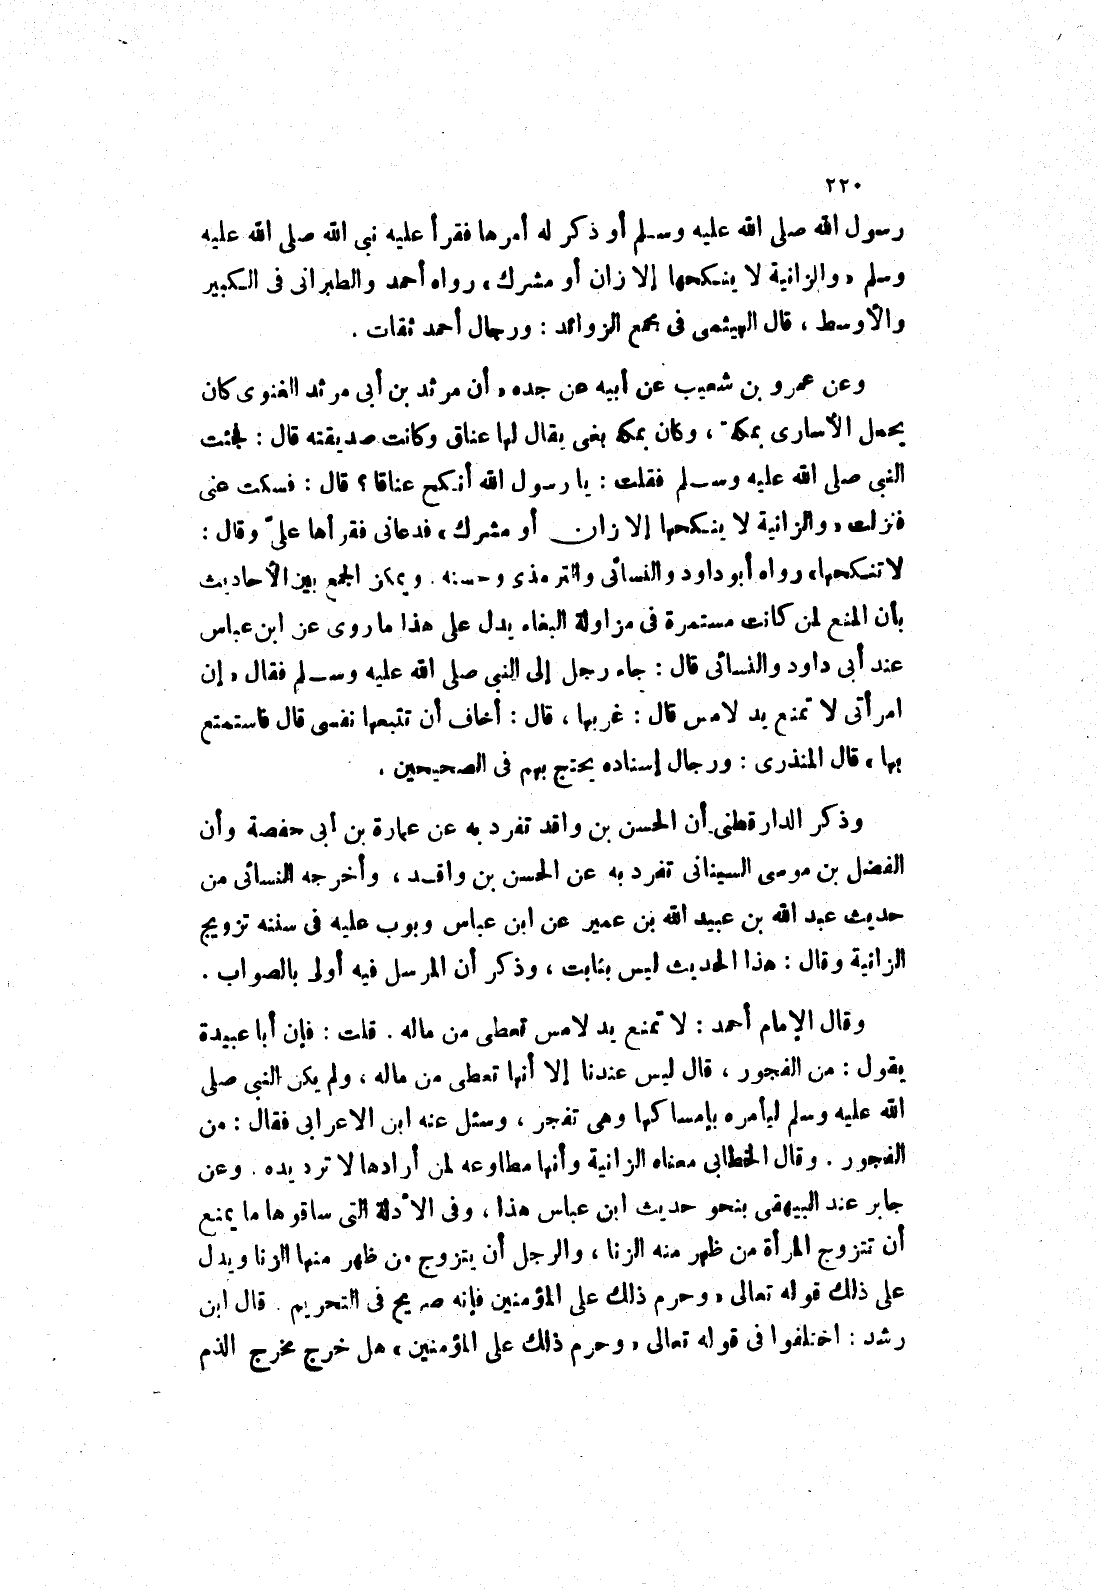 ٢٢٠
رسول الله صلى الله عليه وسلم أو ذكر له أمرها فقرأ عليه نبى الله صلى الله عليه
وسلم «والزانية لا ينكحها إلا زان أو مشرك» رواه أحمد والطبرانى فى الكبير
والأوسط ، قال الهيثمى فى مجمع الزوائد : ورجال أحمد ثقات .
وعن عمرو بن شعيب عن أبيه عن جده «أن مرثد بن أبى مرثد الغنوى كان
يحمل الأسارى بمكة ، وكان بمكة بغى يقال لها عناق وكانت صديقته قال : فجئت
النبى صلى الله عليه وسلم فقلت : يا رسول الله أنكح عناقا ؟ قال : فسكت عنى
فنزلت «والزانية لا ينكحها إلا زان أو مشرك» فدعانى فقرأها علىّ وقال :
لا تنكحها» رواه أبو داود والنسائى والترمذى وحسنه . ويمكن الجمع بين الأحاديث
بأن المنع لمن كانت مستمرة فى مزاولة البغاء يدل على هذا ما روى عن ابن عباس
عند أبى داود والنسائى قال : جاء رجل إلى النبى صلى الله عليه وسلم فقال «إن
امرأتى لا تمنع يد لامس قال : غربها ، قال : أخاف أن تتبعها نفسى قال فاستمتع
بها» قال المنذرى : ورجال إسناده يحتج بهم فى الصحيحين .
وذكر الدارقطنى أن الحسن بن واقد تفرد به عن عمارة بن أبى حفصة وأن
الفضل بن موسى السينانى تفرد به عن الحسن بن واقد ، وأخرجه النسائى من
حديث عبد الله بن عبيد الله بن عمير عن ابن عباس وبوب عليه فى سننه تزويج
الزانية وقال : هذا الحديث ليس بثابت ، وذكر أن المرسل فيه أولى بالصواب .
وقال الإمام أحمد : لا تمنع يد لامس تعطى من ماله . قلت : فإن أبا عبيدة
يقول : من الفجور ، قال ليس عندنا إلا أنها تعطى من ماله ، ولم يكن النبى صلى
الله عليه وسلم ليأمره بإمساكها وهى تفجر ، وسئل عنه ابن الاعرابى فقال : من
الفجور . وقال الخطابى معناه الزانية وأنها مطاوعه لمن أرادها لا ترد يده . وعن
جابر عند البيهقى بنحو حديث ابن عباس هذا ، وفى الأدلة التى ساقوها ما يمنع
أن تتزوج المرأة من ظهر منه الزنا ، والرجل أن يتزوج من ظهر منها الزنا ويدل
على ذلك قوله تعالى «وحرم ذلك على المؤمنين فإنه صريح فى التحريم . قال ابن
رشد : اختلفوا فى قوله تعالى «وحرم ذلك على المؤمنين» هل خرج مخرج الذم